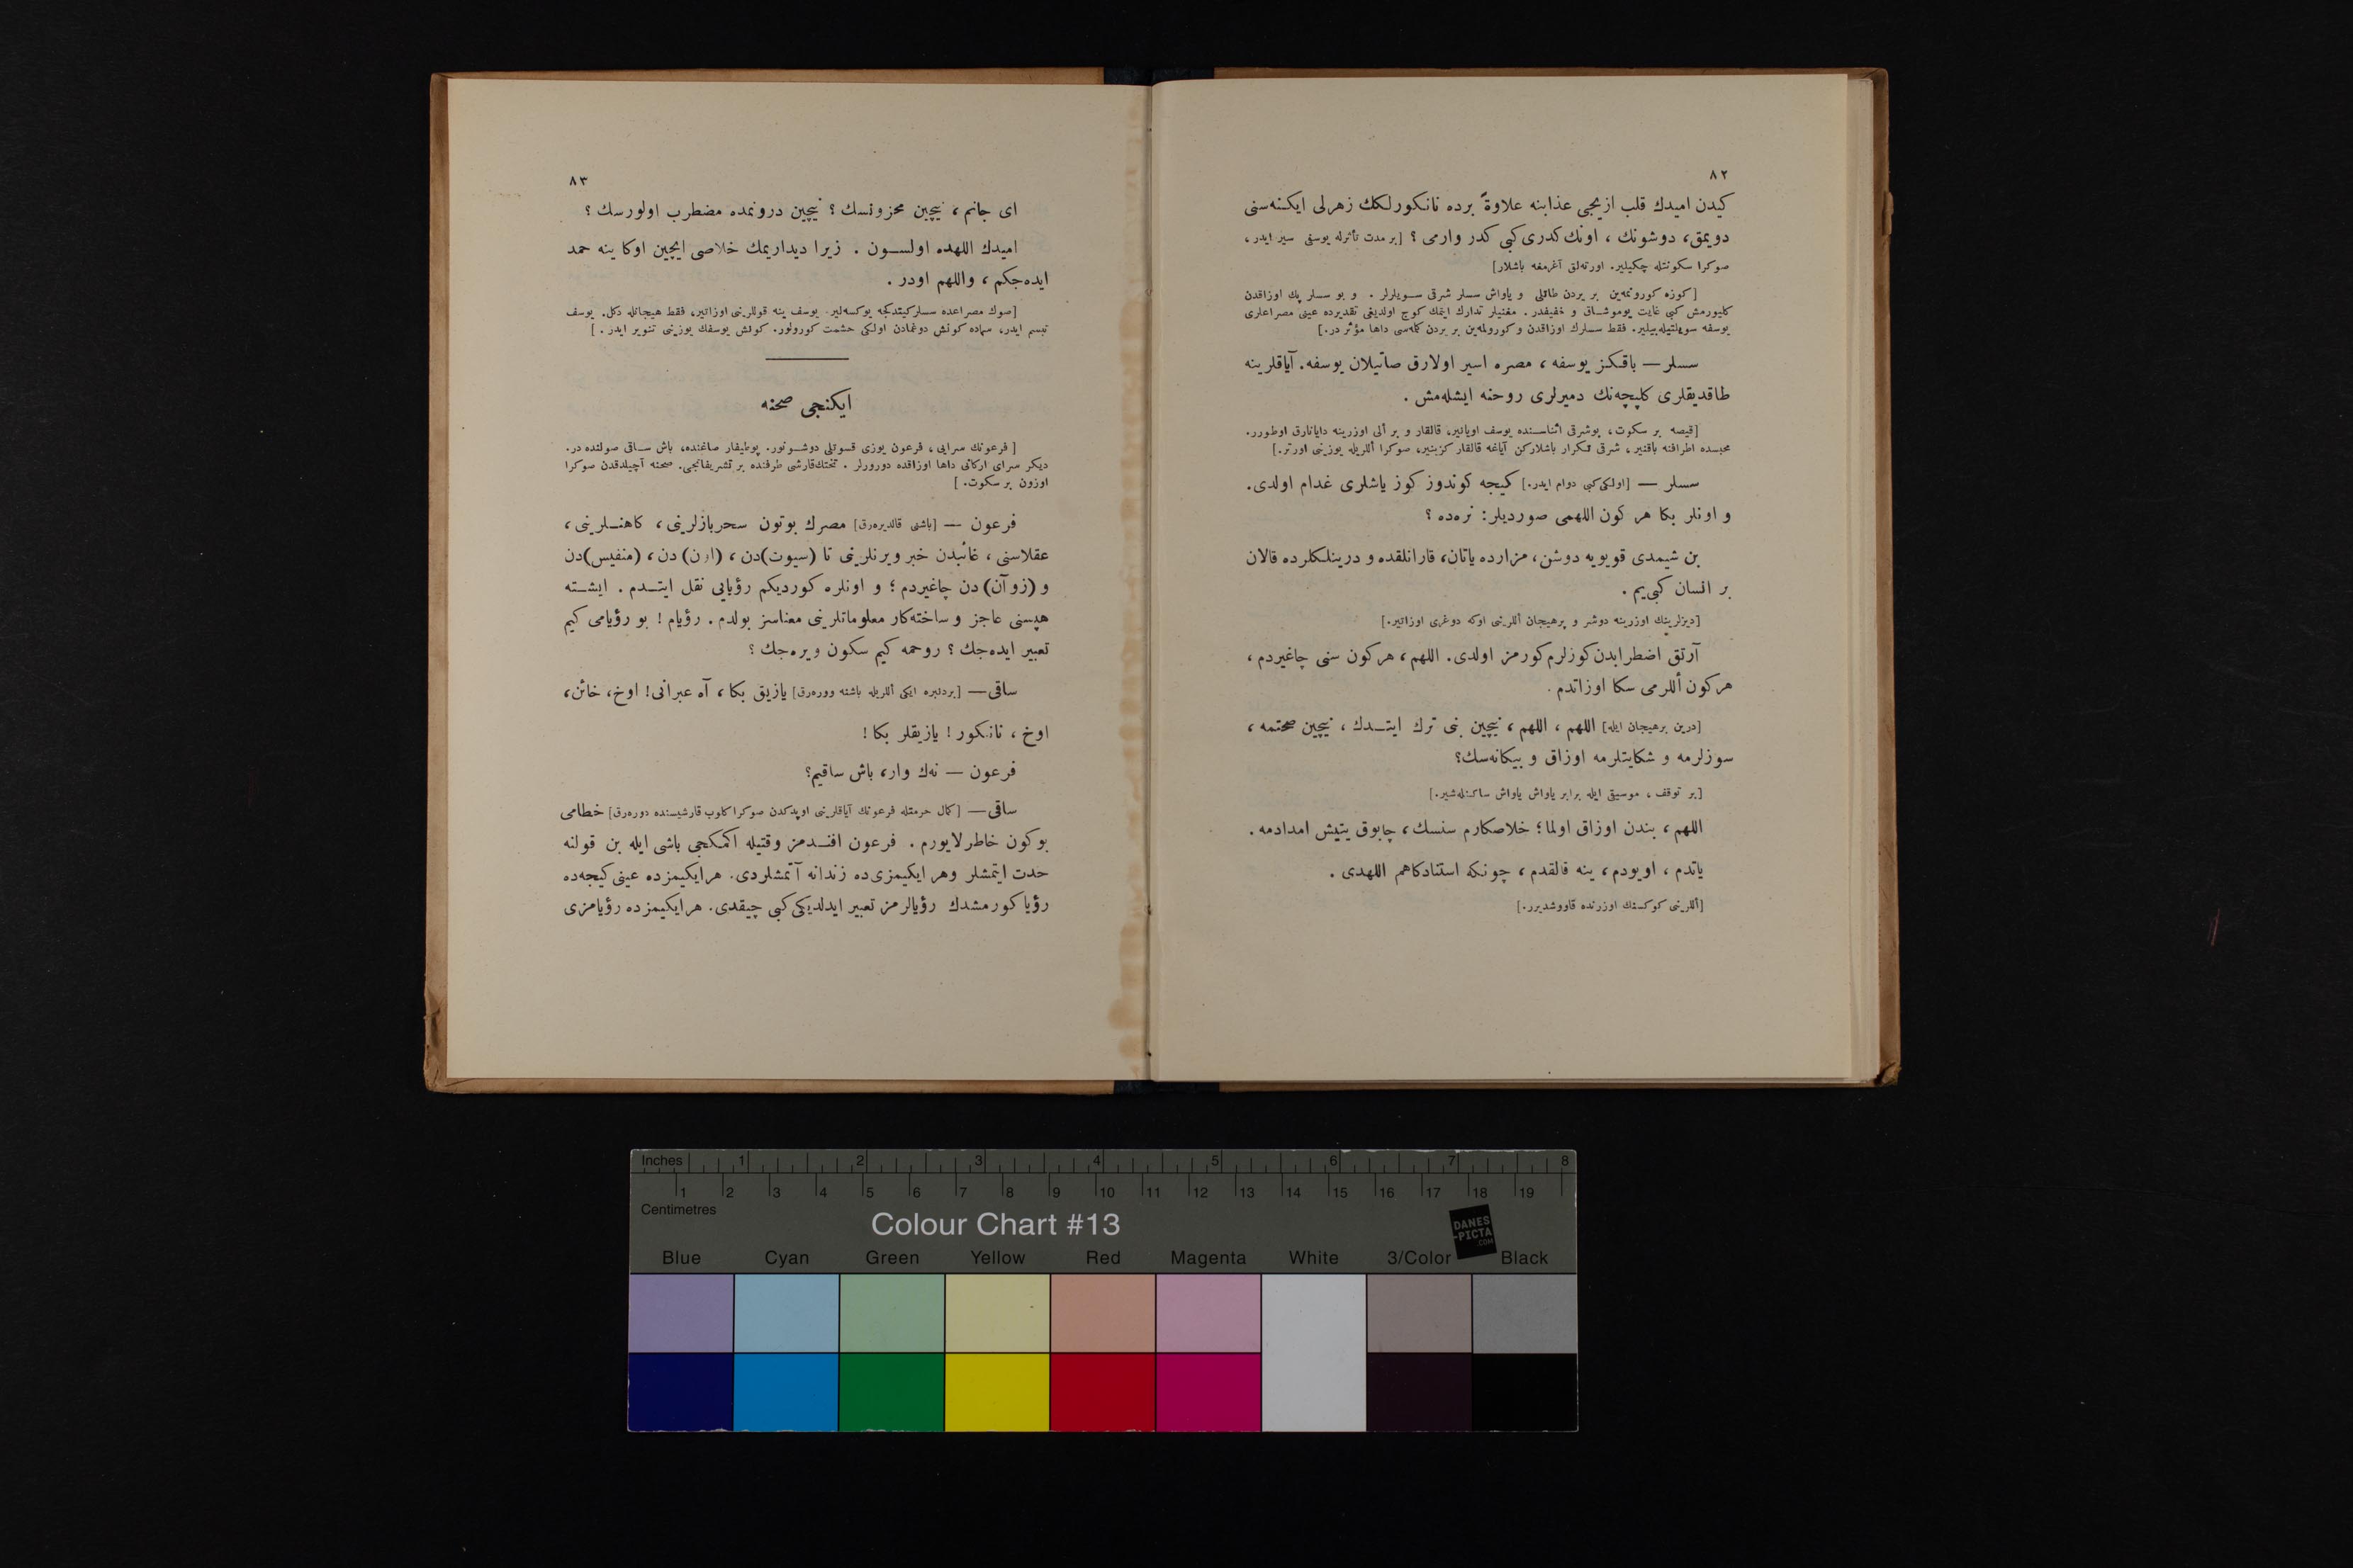 ٨٢
كيدن اميدك قلب ازيجى عذابنه علاوةً برده نانكورلكك زهرلى ايكنه‌سنى
دويمق، دوشونك ، اونك كدرى كبى كدر وارمى ؟ [بر مدت تأثرله يوسفى سير ايدر،
صوكرا سكونتله چكيلير. اورته‌لق آغرمغه باشلار]
[كوزه كورونمه‌ين بر يردن طاتلى و ياواش سسلر شرقى سويلرلر . و بو سسلر پك اوزاقدن
كليورمش كبى غايت يوموشاق و خفيفدر. مغنيلر تدارك ايتمك كوچ اولديغى تقديرده عينى مصراعلرى
يوسفه سويلتيله‌بيلير. فقط سسلرك اوزاقدن و كورولمه‌ين بر يردن كلمه‌سى داها مؤثر در.]
سسلر — باقكز يوسفه ، مصره اسير اولارق صاتيلان يوسفه. آياقلرينه
طاقديقلرى كلپچه‌نك دميرلرى روحنه ايشله‌مش .
[قيصه بر سكوت ، بوشرقى اثناسنده يوسف اويانير، قالقار و بر ألى اوزرينه دايانارق اوطورر.
محبسده اطرافنه باقنير ، شرقى تكرار باشلاركن آياغه قالقار كزينير، صوكرا أللريله يوزينى اورتر.]
سسلر — [اولكى كبى دوام ايدر.] كيجه كوندوز كوز ياشلرى غدام اولدى.
و اونلر بكا هر كون اللهمى صورديلر: نره‌ده ؟
بن شيمدى قويويه دوشن، مزارده ياتان، قارانلقده و درينلكلرده قالان
بر انسان كبى‌يم .
[ديزلرينك اوزرينه دوشر و پرهيجان أللرينى اوكه دوغرى اوزاتير.]
آرتق اضطرابدن كوزلرم كورمز اولدى. اللهم، هركون سنى چاغيردم ،
هركون أللرمى سكا اوزاتدم .
[درين برهيجان ايله] اللهم ، اللهم ، نيچين بنى ترك ايتدك ، نيچين صحتمه ،
سوزلرمه و شكايتلرمه اوزاق و بيكانه‌سك؟
[بر توقف ، موسيقى ايله برابر ياواش ياواش ساكنله‌شير.]
اللهم ، بندن اوزاق اولما ؛ خلاصكارم سنسك ، چابوق يتيش امدادمه .
ياتدم ، اويودم ، ينه قالقدم ، چونكه استنادكاهم اللهدى .
[أللرينى كوكسنك اوزرنده قاووشديرر.]
٨٣
اى جانم ، نيچين محزونسك ؟ نيچين درونمده مضطرب اولورسك ؟
اميدك اللهده اولسون . زيرا ديداريمك خلاصى ايچين اوكا ينه حمد
ايده‌جكم ، واللهم اودر .
[صوك مصراعده سسلر كيتدكجه يوكسه‌لير. يوسف ينه قوللرينى اوزاتير، فقط هيجانله دكل. يوسف
تبسم ايدر، سماده كونش دوغمادن اولكى حشمت كورولور. كونش يوسفك يوزينى تنوير ايدر . ]
ايكنجى صحنه
[ فرعونك سرايى ، فرعون يوزى قسوتلى دوشونور. پوطيفار صاغنده، باش ساقى صولنده در.
ديكر سراى اركانى داها اوزاقده دورورلر . تختك قارشى طرفنده بر تشريفاتجى. صحنه آچيلدقدن صوكرا
اوزون بر سكوت. ]
فرعون — [باشنى قالديره‌رق] مصرك بوتون سحربازلرينى ، كاهنلرينى ،
عقلاسنى ، غائبدن خبر ويرنلرينى تا (سيوت)دن ، (اون) دن ، (منفيس)دن
و (زوآن) دن چاغيردم ؛ و اونلره كورديكم رؤيايى نقل ايتدم . ايشته
هپسنى عاجز و ساخته‌كار معلوماتلرينى معناسز بولدم . رؤيام ! بو رؤيامى كيم
تعبير ايده‌جك ؟ روحمه كيم سكون ويره‌جك ؟
ساقى— [بردنبره ايكى أللريله باشنه ووره‌رق] يازيق بكا ، آه عبرانى! اوخ، خائن،
اوخ ، نانكور ! يازيقلر بكا !
فرعون — نه‌ك وار، باش ساقيم؟
ساقى— [كمال حرمتله فرعونك آياقلرينى اوپدكدن صوكرا كلوب قارشيسنده دوره‌رق] خطامى
بوكون خاطرلايورم . فرعون افندمز وقتيله اكمكجى باشى ايله بن قولنه
حدت ايتمشلر وهر ايكيمزى‌ده زندانه آتمشلردى. هرايكيمزده عينى كيجه‌ده
رؤيا كورمشدك رؤيالرمز تعبير ايدلديكى كبى چيقدى. هرايكيمزده رؤيامزى
Inches 1 2 3 4 5 6 7 8
1 2 3 4 5 6 7 8 9 10 11 12 13 14 15 16 17 18 19
Centimetres
Colour Chart #13
DANES
-PICTA
.COM
Blue Cyan Green Yellow Red Magenta White 3/Color Black